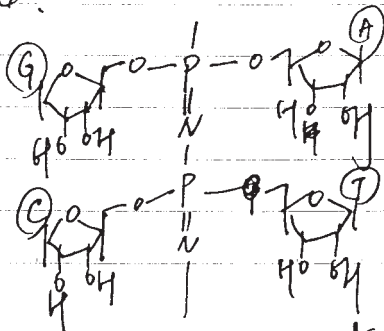 G O O P O O A
H O OH N H O H OH
C O O P O T
H O OH N HO OH